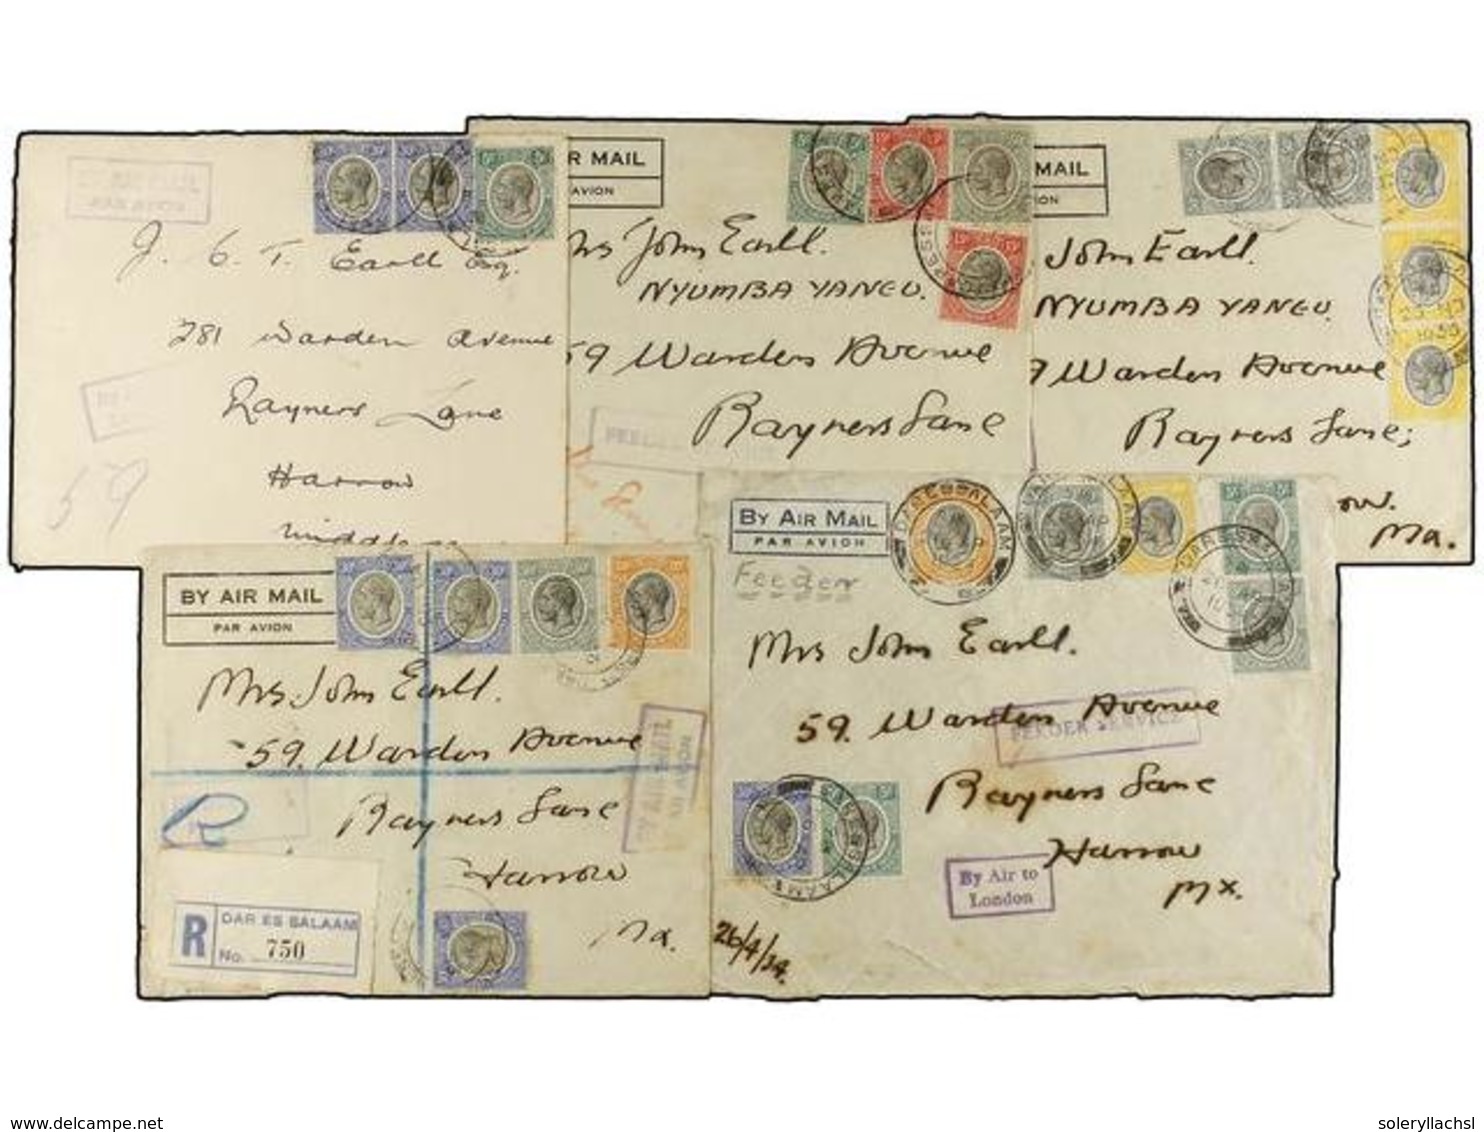 J. C. T. Earll Esq.
281 Warden Avenue
Rayners Lane
Harrow
59
AIR MAIL
AVION
Mrs John Earll.
NYUMBA YANGU.
59 Warden Avenue
Rayners Lane
FEEDER
MAIL
John Earll.
NYUMBA YANGU.
Warden Avenue
Rayners Lane;
Mx.
BY AIR MAIL
PAR AVION
Mrs John Earll.
59. Warden Avenue
Rayners Lane
Harrow
Mx.
BY AIR MAIL
PAR AVION
R
R
DAR ES SALAAM
No. 750
BY AIR MAIL
PAR AVION
Feeder
DAR ES SALAAM
Mrs John Earll.
59. Warden Avenue
FEEDER SERVICE
Rayners Lane
Harrow
Mx.
By Air to
London
26/4/34.
delcampe.net
soleryllachsl